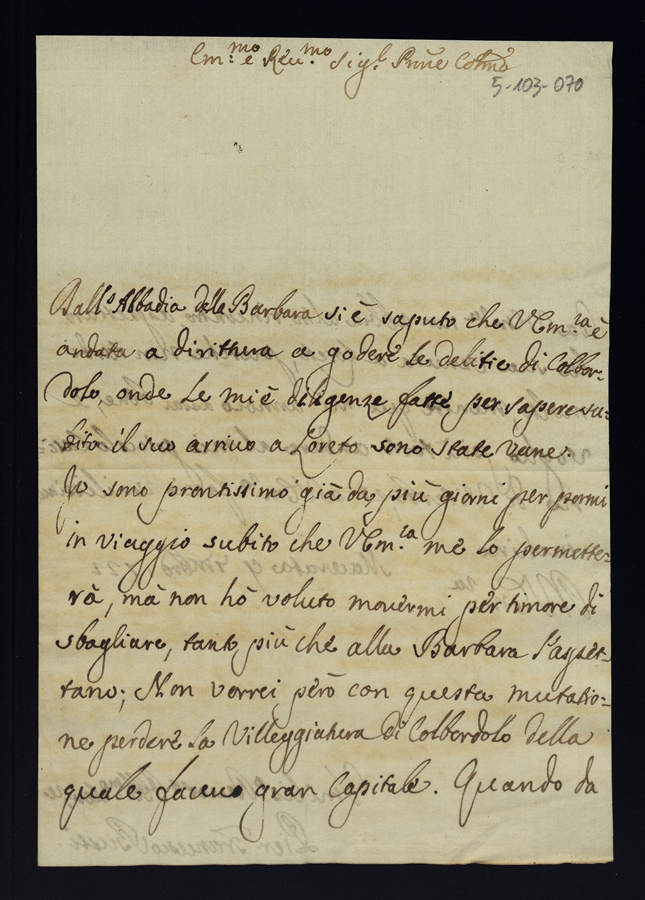 Em.mo e Rev.mo Sig.r Prñe Colmo
5-103-070
Dall'Abbadia della Barbara si è saputo che VEm.za è
andata a dirittura a godere le delitie di Colbor-
dolo, onde le mie diligenze fatte per sapere su-
bito il suo arrivo a Loreto sono state vane.
Io sono prontissimo già da più giorni per pormi
in viaggio subito che VEm.za me lo permette-
rà, mà non hò voluto movermi per timore di
sbagliare, tanto più che alla Barbara l'aspet-
tano; Non vorrei però con questa mutatio-
ne perdere la Villeggiatura di Colbordolo della
quale facevo gran Capitale. Quando da